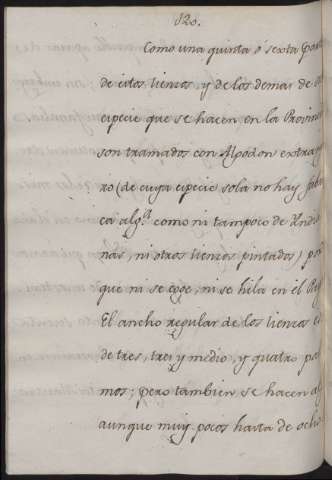 120.
Como una quinta ó sexta par
de estos lienzos, y de los demas de
especie que se hacen en la Provin
son tramados con Algodon extrag
ro (de cuya especie sola no hay fabri
ca alg.ª como ni tampoco de Yndia
nas, ni otros lienzos pintados) por
que ni se coge, ni se hila en el R
El ancho regular de los lienzos e
de tres, tres y medio, y quatro pal
mos; pero tambien se hacen al
aunque muy pocos hasta de ocho